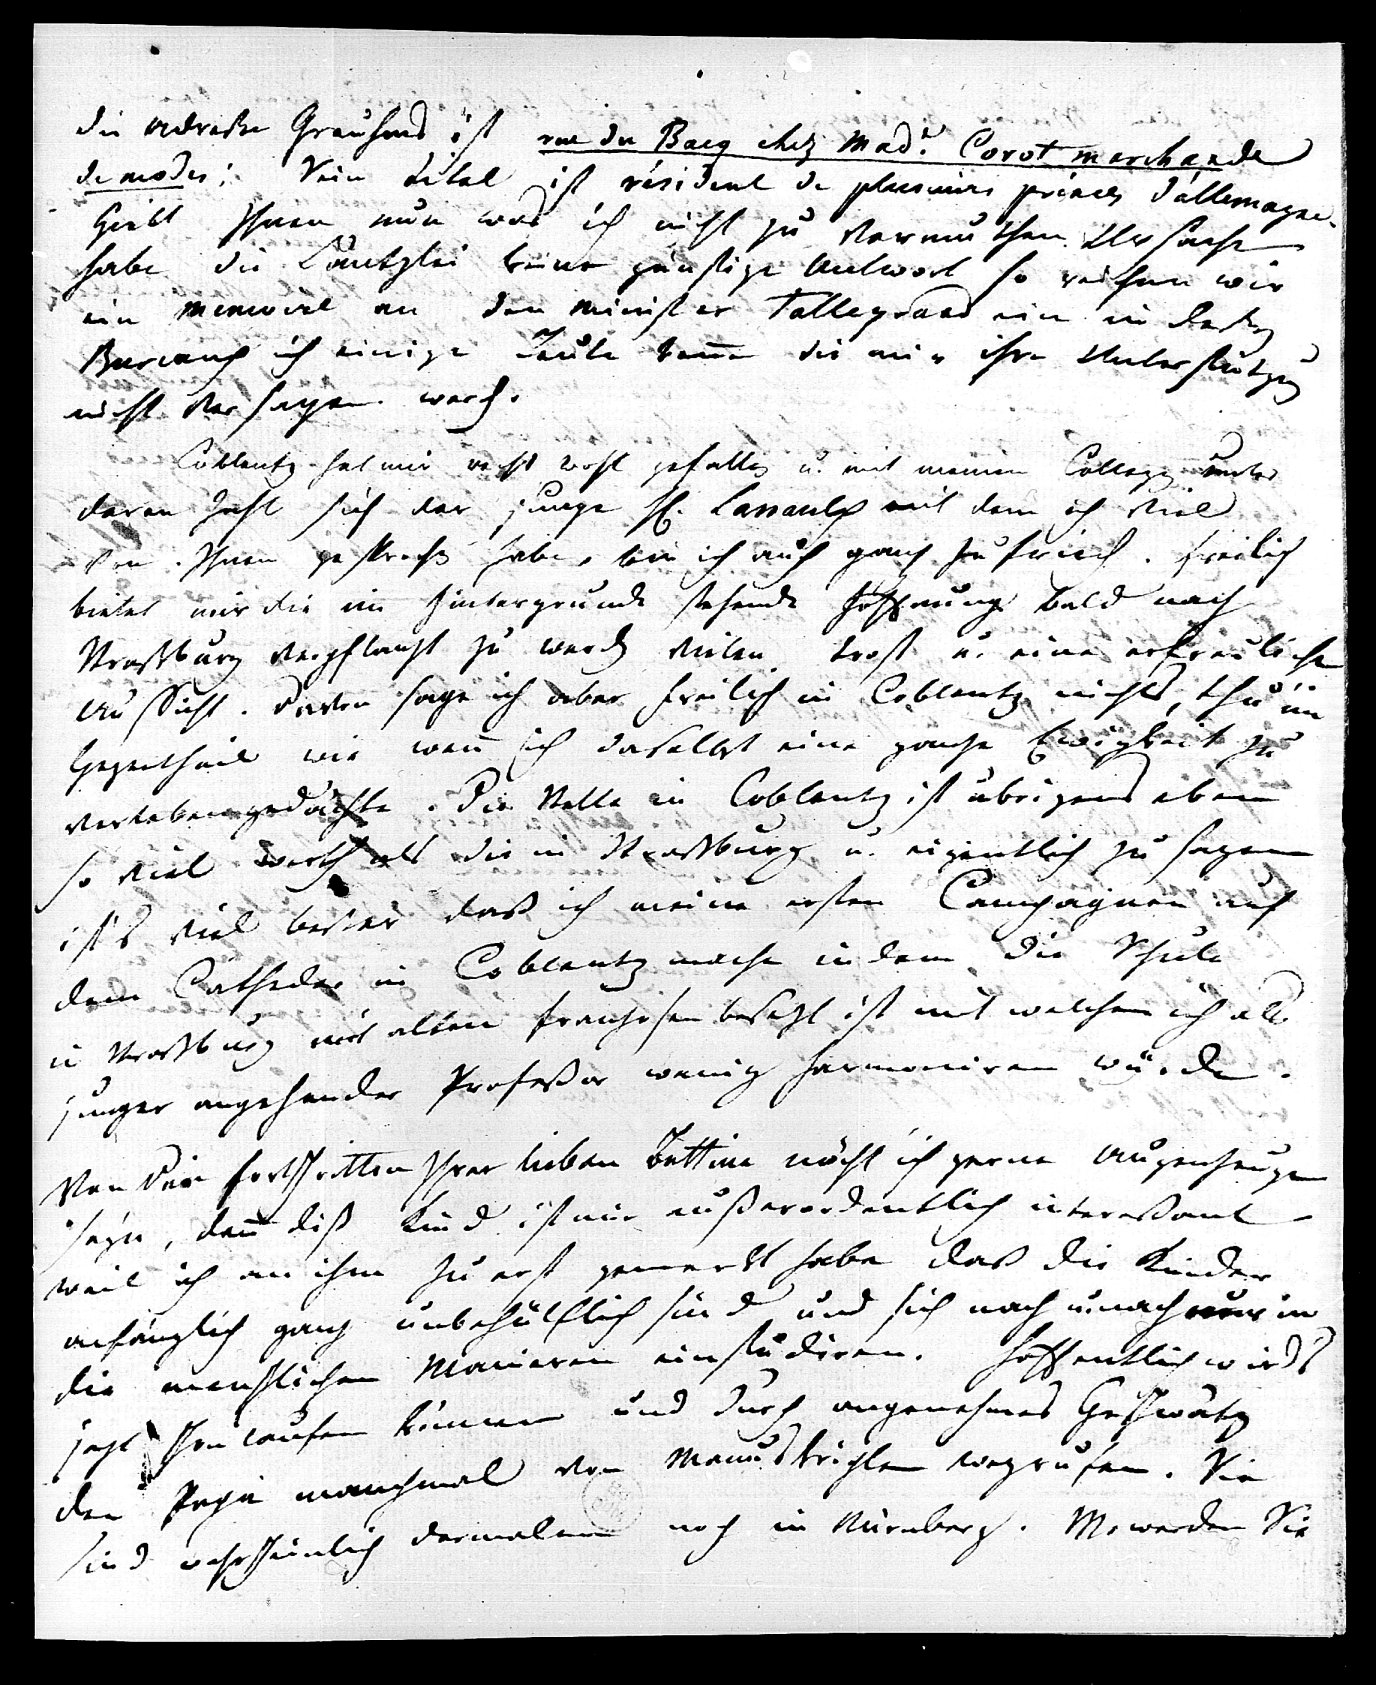 die Adresse Greuhms ist rue du Bacq chez Mad.e Corot marchande
de modes; Sein titel ist résident de plusieurs princes d'allemagne.
Giebt Ihnen nun was ich nicht zu vermuthen Ursache
habe die Cantzlei keine günstige Antwort so reichen wir
ein memoire an den Minister Talleyrand ein in deßen
Bureaux ich einige Leute kenne die mir ihre Unterstützung
nicht versagen werden.
Coblentz hat mir recht wohl gefallen u. mit meinen Collegen unter
denen sich der junge H. Lassaulx mit dem ich viel
von Ihnen gesprochen habe, bin ich auch ganz zufrieden. Freilich
bietet mir die im Hintergrunde stehende Hoffnung bald nach
Straßburg verpflanzt zu werden vielen Trost u. eine erfreuliche
Aussicht. Davon sage ich aber freilich in Coblentz nichts, thu im
Gegentheil wie wenn ich daselbst eine ganze Ewigkeit zu
verleben gedächte. Die Stelle in Coblentz ist übrigens eben
so viel werth als die in Straßburg u. eigentlich zu sagen
ist's viel besser daß ich meine ersten Campagnen auf
dem Catheder in Coblentz mache indem die Schule
in Straßburg mit alten Franzosen besetzt ist mit welchen ich als
junger angehender Professor wenig harmoniren würde.
Von den Fortschritten Ihrer lieben Bettine möcht ich gerne Augenzeuge
seyn, denn diß Kind ist mir außerordentlich interessant
weil ich an ihm zuerst gemerkt habe daß die Kinder
anfänglich ganz unbehülflich sind und sich nach u. nach in
die menschlichen Manieren einstudiren. Hoffentlich wirds
jezt schon laufen können und durch angenehmes Geschwätz
den Papa manchmal von Manuskripten wegrufen. Sie
sind wahrscheinlich dermalen noch in Nürnberg. Wo werden Sie